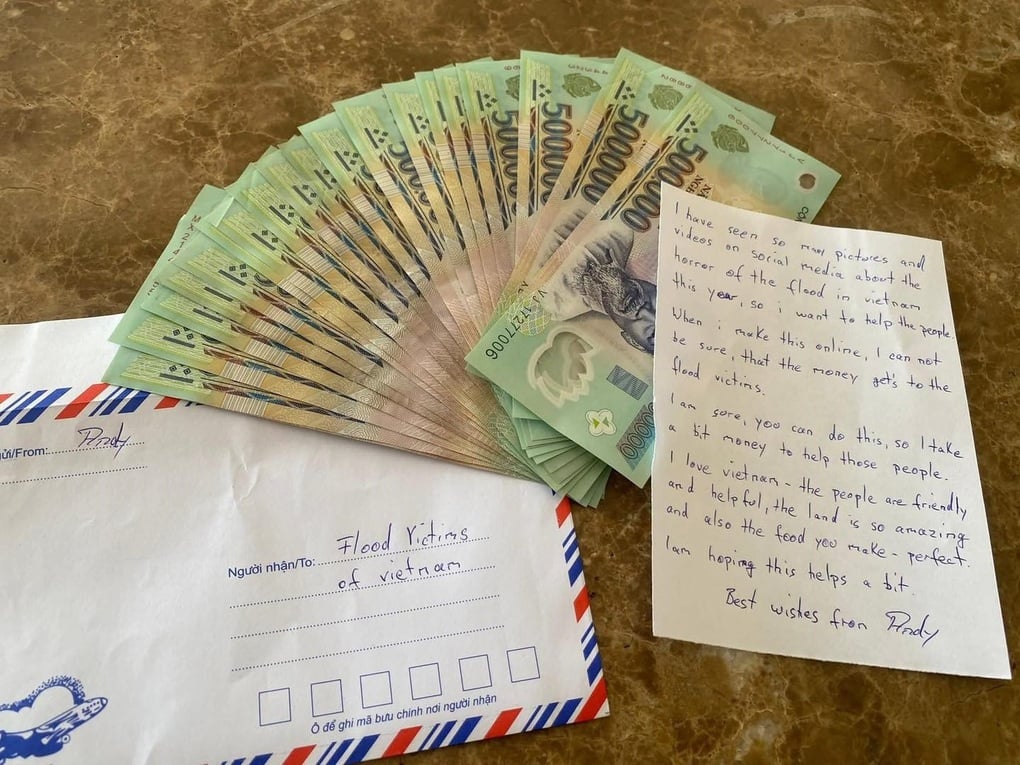 500000
500000
500000
500000
VJ17277006
I have seen so many pictures and
videos on social media about the
horror of the flood in vietnam
this year, so i want to help the people.
When i make this online, I can not
be sure, that the money get's to the
flood victims.
I am sure, you can do this, so I take
a bit money to help those people.
I love vietnam - the people are friendly
and helpful, the land is so amazing
and also the food you make - perfect.
I am hoping this helps a bit.
Best wishes from Andy
ửi/From: Andy
Người nhận/To: Flood Victims
of vietnam
Ô để ghi mã bưu chính nơi người nhận